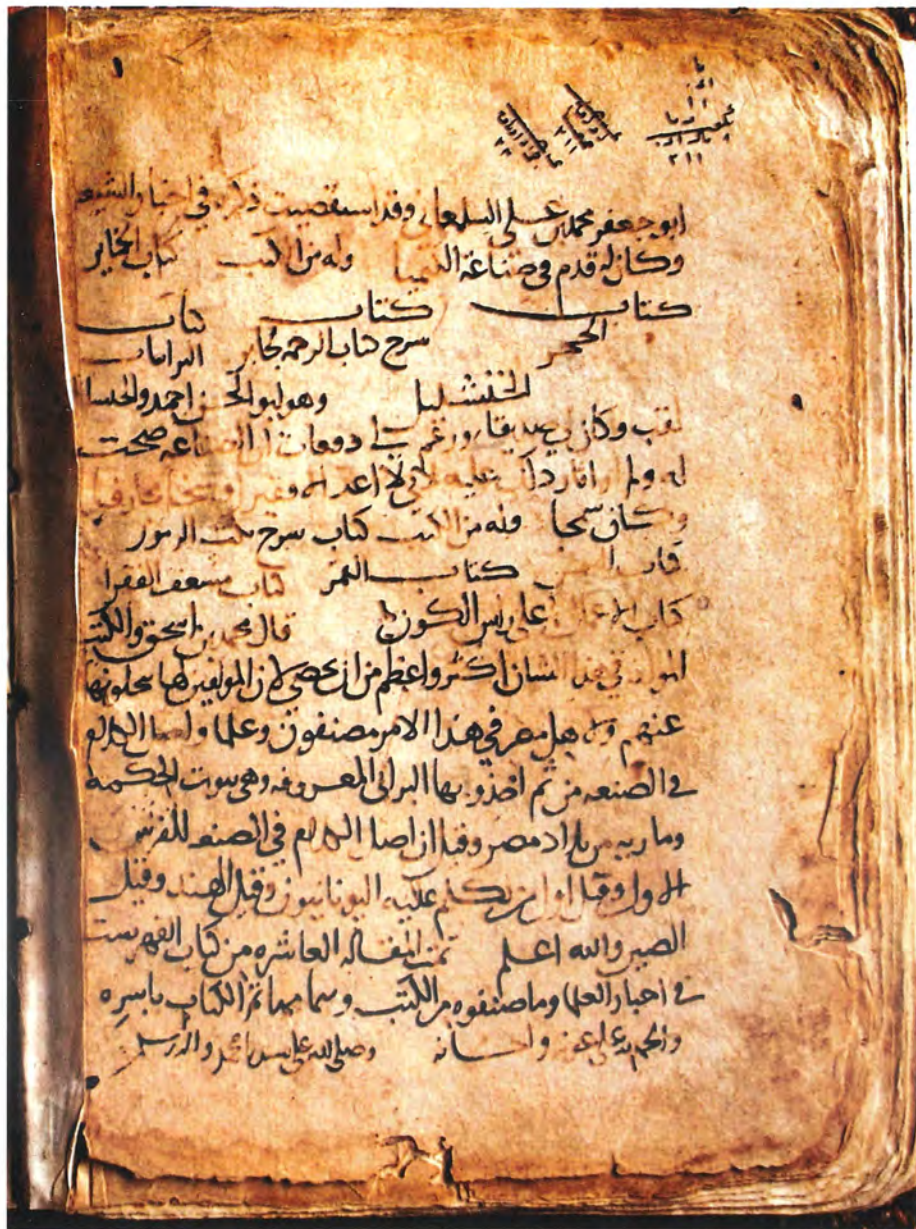 ٢١١
ابو جعفر محمد بن علي الشلمغاني وقد استقصيت ذكره في اخبار الشيعه
وكان له قدم في صناعة الكيميا وله من الكتب كتاب الخماير
كتاب كتاب كتاب
الحجر شرح كتاب الرحمه لجابر البرانيات
الخنشليل وهو ابو الحسن احمد والخنشليل
لقب وكان لي صديقا وزعم لي دفعات ان الصناعه صحت
له ولم ار اثار ذلك عليه لاني لا اعد له وفقيرا
وكان سمجا وله من الكتب كتاب شرح نكت الرموز
كتاب الشمس كتاب القمر كتاب مسعف الفقرا
كتاب الاعمال على راس الكور قال محمد بن اسحق والكتب
المولفه في هذا الشان اكثر واعظم من ان يحصى لان المولفين لها ينحلونها
عنهم ولاهل مصر في هذا الامر مصنفون وعلما واصل الكلام
في الصنعه من ثم اخذ وبها البرابي المعروفه وهي بيوت الحكمه
وماريه من بلاد مصر وقيل ان اصل الكلام في الصنعه للفرس
الاول وقيل اول من تكلم عليه اليونانيون وقيل الهند وقيل
الصين والله اعلم تمت المقاله العاشره من كتاب الفهرست
في اخبار العلما وما صنفوه من الكتب وبتمامها تم الكتاب باسره
والحمد لله على عونه واحسانه وصلى الله على سيدنا محمد واله وسلم